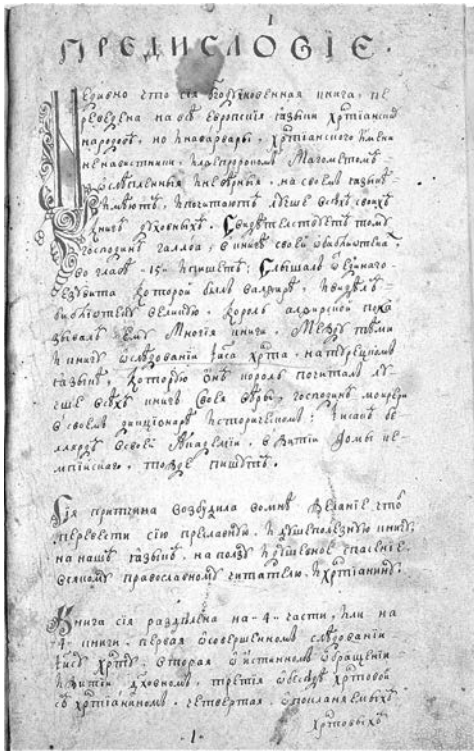 ПРЕДИСЛО́ВІЕ.
что сія бг҃одх҃новенная книга, пе
реведена на всѣ европскія ꙗзыки хрⷭ҇тіанскихъ
народовъ, но и на варвары, хрⷭ҇тіанского имени
ненавистники, и лжепророкомъ Магометомъ
ѡслѣпленныя и невѣрныя, на своемъ ꙗзыкѣ
имѣютъ, и почитаютъ лучше всѣхъ своихъ
книгъ духовныхъ. Свидѣтелствуетъ тому
господинъ галлоа, в книгѣ своей ѡ библиѡтекахъ,
во главѣ -15- и пишетъ: Слышалъ ѿ единаго
езувита которой былъ в алжирѣ, и видѣлъ
библіѡтеку великую, король алжирской пока
зывалъ ему многія книги. Между тѣми
и книгу ѡ слѣдованіи іисꙋса хрⷭ҇та, на турецкомъ
ꙗзыкѣ, которую ѻнъ король почиталъ лу
чше всѣхъ книгъ своея вѣры, господинъ морери
в своемъ дикціонарѣ историческомъ:
в своей Академіи, в житіи Ѳомы кем
пійскаго, тожде пишутъ.
Сія притчина возбудила во мнѣ желаніе чтоб
перевести сію преславную, и душеполезную книгу,
на нашъ ꙗзыкъ, на ползу и душевное спасеніе.
всякому православному читателю, и хрⷭ҇тіанину.
Книга сія раздѣлена на -4- части, или на
-4- книги. первая ѡ совершенномъ слѣдованіи
іису хрⷭ҇ту. вторая ѡ истинномъ ѡбращеніи
и житіи духовномъ, третія ѡ бесѣдѣ хрⷭ҇товой
съ хрⷭ҇тіаниномъ. четвертая
хрⷭ҇товыхъ
-1-